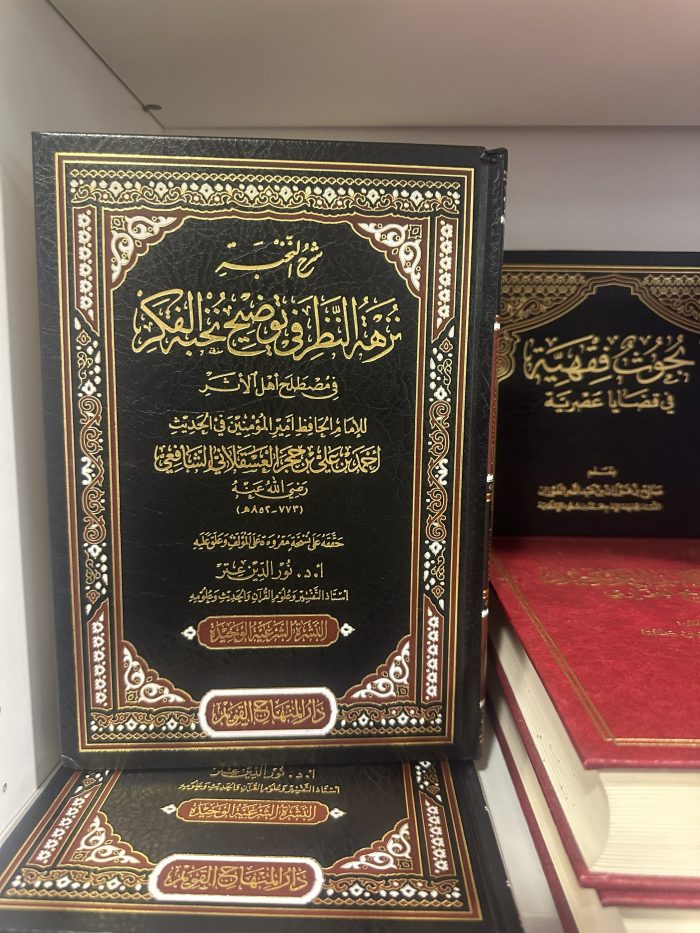 شرح النخبة
نزهة النظر في توضيح نخبة الفكر
في مصطلح أهل الأثر
للإمام الحافظ أمير المؤمنين في الحديث
أحمد بن علي بن حجر العسقلاني الشافعي
رضي الله عنه
(٧٧٣-٨٥٢هـ)
حققه على نسخة مقروءة على المؤلف وعلق عليه
أ.د. نور الدين عتر
أستاذ التفسير وعلوم القرآن والحديث وعلومه
النشرة الشرعية الوحيدة
دار المنهاج القويم
أ.د. نور الدين عتر
أستاذ التفسير وعلوم القرآن والحديث وعلومه
النشرة الشرعية الوحيدة
دار المنهاج القويم
بحوث فقهية
في قضايا عصرية
بقلم